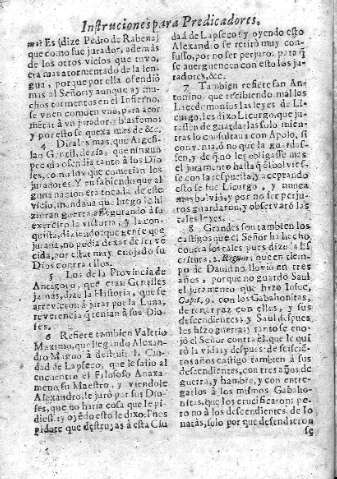 Instruciones para Predicadores.
mi? Es (dize Pedro de Rabena)
que como fue jurador, ademàs
de los otros vicios que tuvo,
era mas atormentado de la len-
gua, porque por ella ofendiò
mas al Señor; y aunque ay mu-
chos tormentos en el Infierno,
se vnen como en vno, para ator-
mentar à vn jurador, blasfemo;
y por esto se quexa mas de &c.
4 Diràles mas que Agesi-
lao
que
los Dio-
ses, como los que cometian los
juradores. Y en sabiendo que al-
guna nacion era tocada de este
vicio,
exercito la vitoria, y la con-
quista, diziendo que gente que
jurava, no podia dexar de ser ve-
cida, por estar muy enojado su
Dios contra ellos.
5 Los de la Provincia de
que eran Gentiles
jamàs, dize la Historia, que se
atrevieron à jurar por la Luna,
reverencia q tenian à sus Dioses.
6 Refiere tambien Valerio
Maximo, que llegando Alexan-
dro Magno à destruir la Ciudad
de Lapseco, que le salio al
encuentro el Filosofo Anaxa-
meno, su Maestro, y viendole
Alexandro, le jurò por sus Dio-
ses, que no haria cosa que le pi-
diesse, y oyendo esto le dixo, Pi-
dote que destruyas à esta Ciu-
dad de Lapseco: y oyendo esto
Alexandro se retirò muy con-
fuso, por no ser perjuro, para q
se averguencen con esto los ju-
radores, &c.
7 Tambien refiere San An-
tonino, que recibiendo mal los
Lacedemonios las leyes de Li-
curgo, les dixo Licurgo, que ju-
rassen de guardarlas solo mien-
tras èl consultava con Apolo, si
convenia, ò no que la guardas-
sen, y de q no les obligasse mas
el juramento hasta q èl bolviesse
con la respuesta, y aceptando
esto se fue Licurgo, y nunca
mas bolviò, y por no ser perju-
ros guardaron, y observaron las
tales leyes.
8 Grandes son tambien los
castigos que el Señor ha hecho
contra los tales, pues dize la Es-
critura, 2. Regum, que en tiempo
de David no llovió en tres
años, porque no guardò Saul
el juramento que hizo Josue,
Capit. 9. con los Gabaonitas,
de tratar paz con ellos, y sus
descendientes, y Saul despues
les hizo guerra; y tanto se eno-
jò el Señor contra èl, que le qui-
tò la vida; y despues de
años castigò tambien à sus
descendientes, con tres años de
guerra, y hambre, y con entre-
garlos à los mismos Gabao-
nitas, que los crucificaron; pe-
ro no à los descendientes de Jo-
natàs, solo por que descendieron